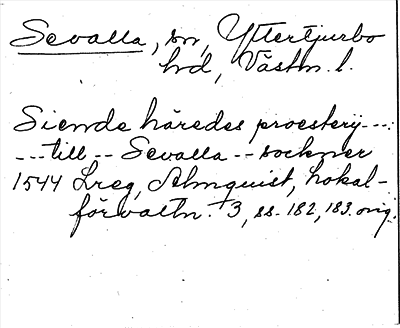 Sevalla, sn, Yttertjurbo
hd, Västm. l.
Siende häredes proesterij---
---till -- Sevalla -- sockner
1544 Lreg, Almquist, Lokal-
förvaltn. 3, ss. 182, 183. orig.